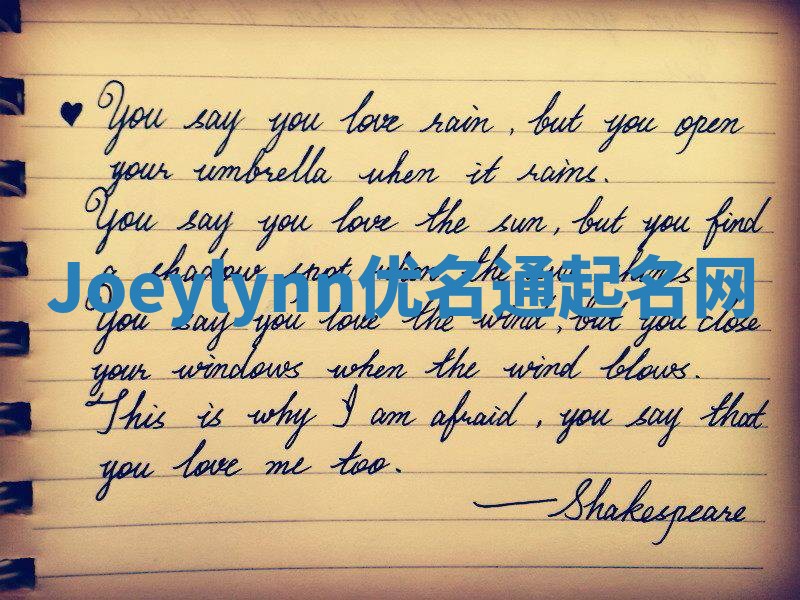 ♥ You say you love rain, but you open
your umbrella when it rains.
You say you love the sun, but you find
a shadow spot when the sun shines
Joeylynn优名通起名网
You say you love the wind, but you close
your windows when the wind blows.
This is why I am afraid, you say that
you love me too.
—Shakespeare